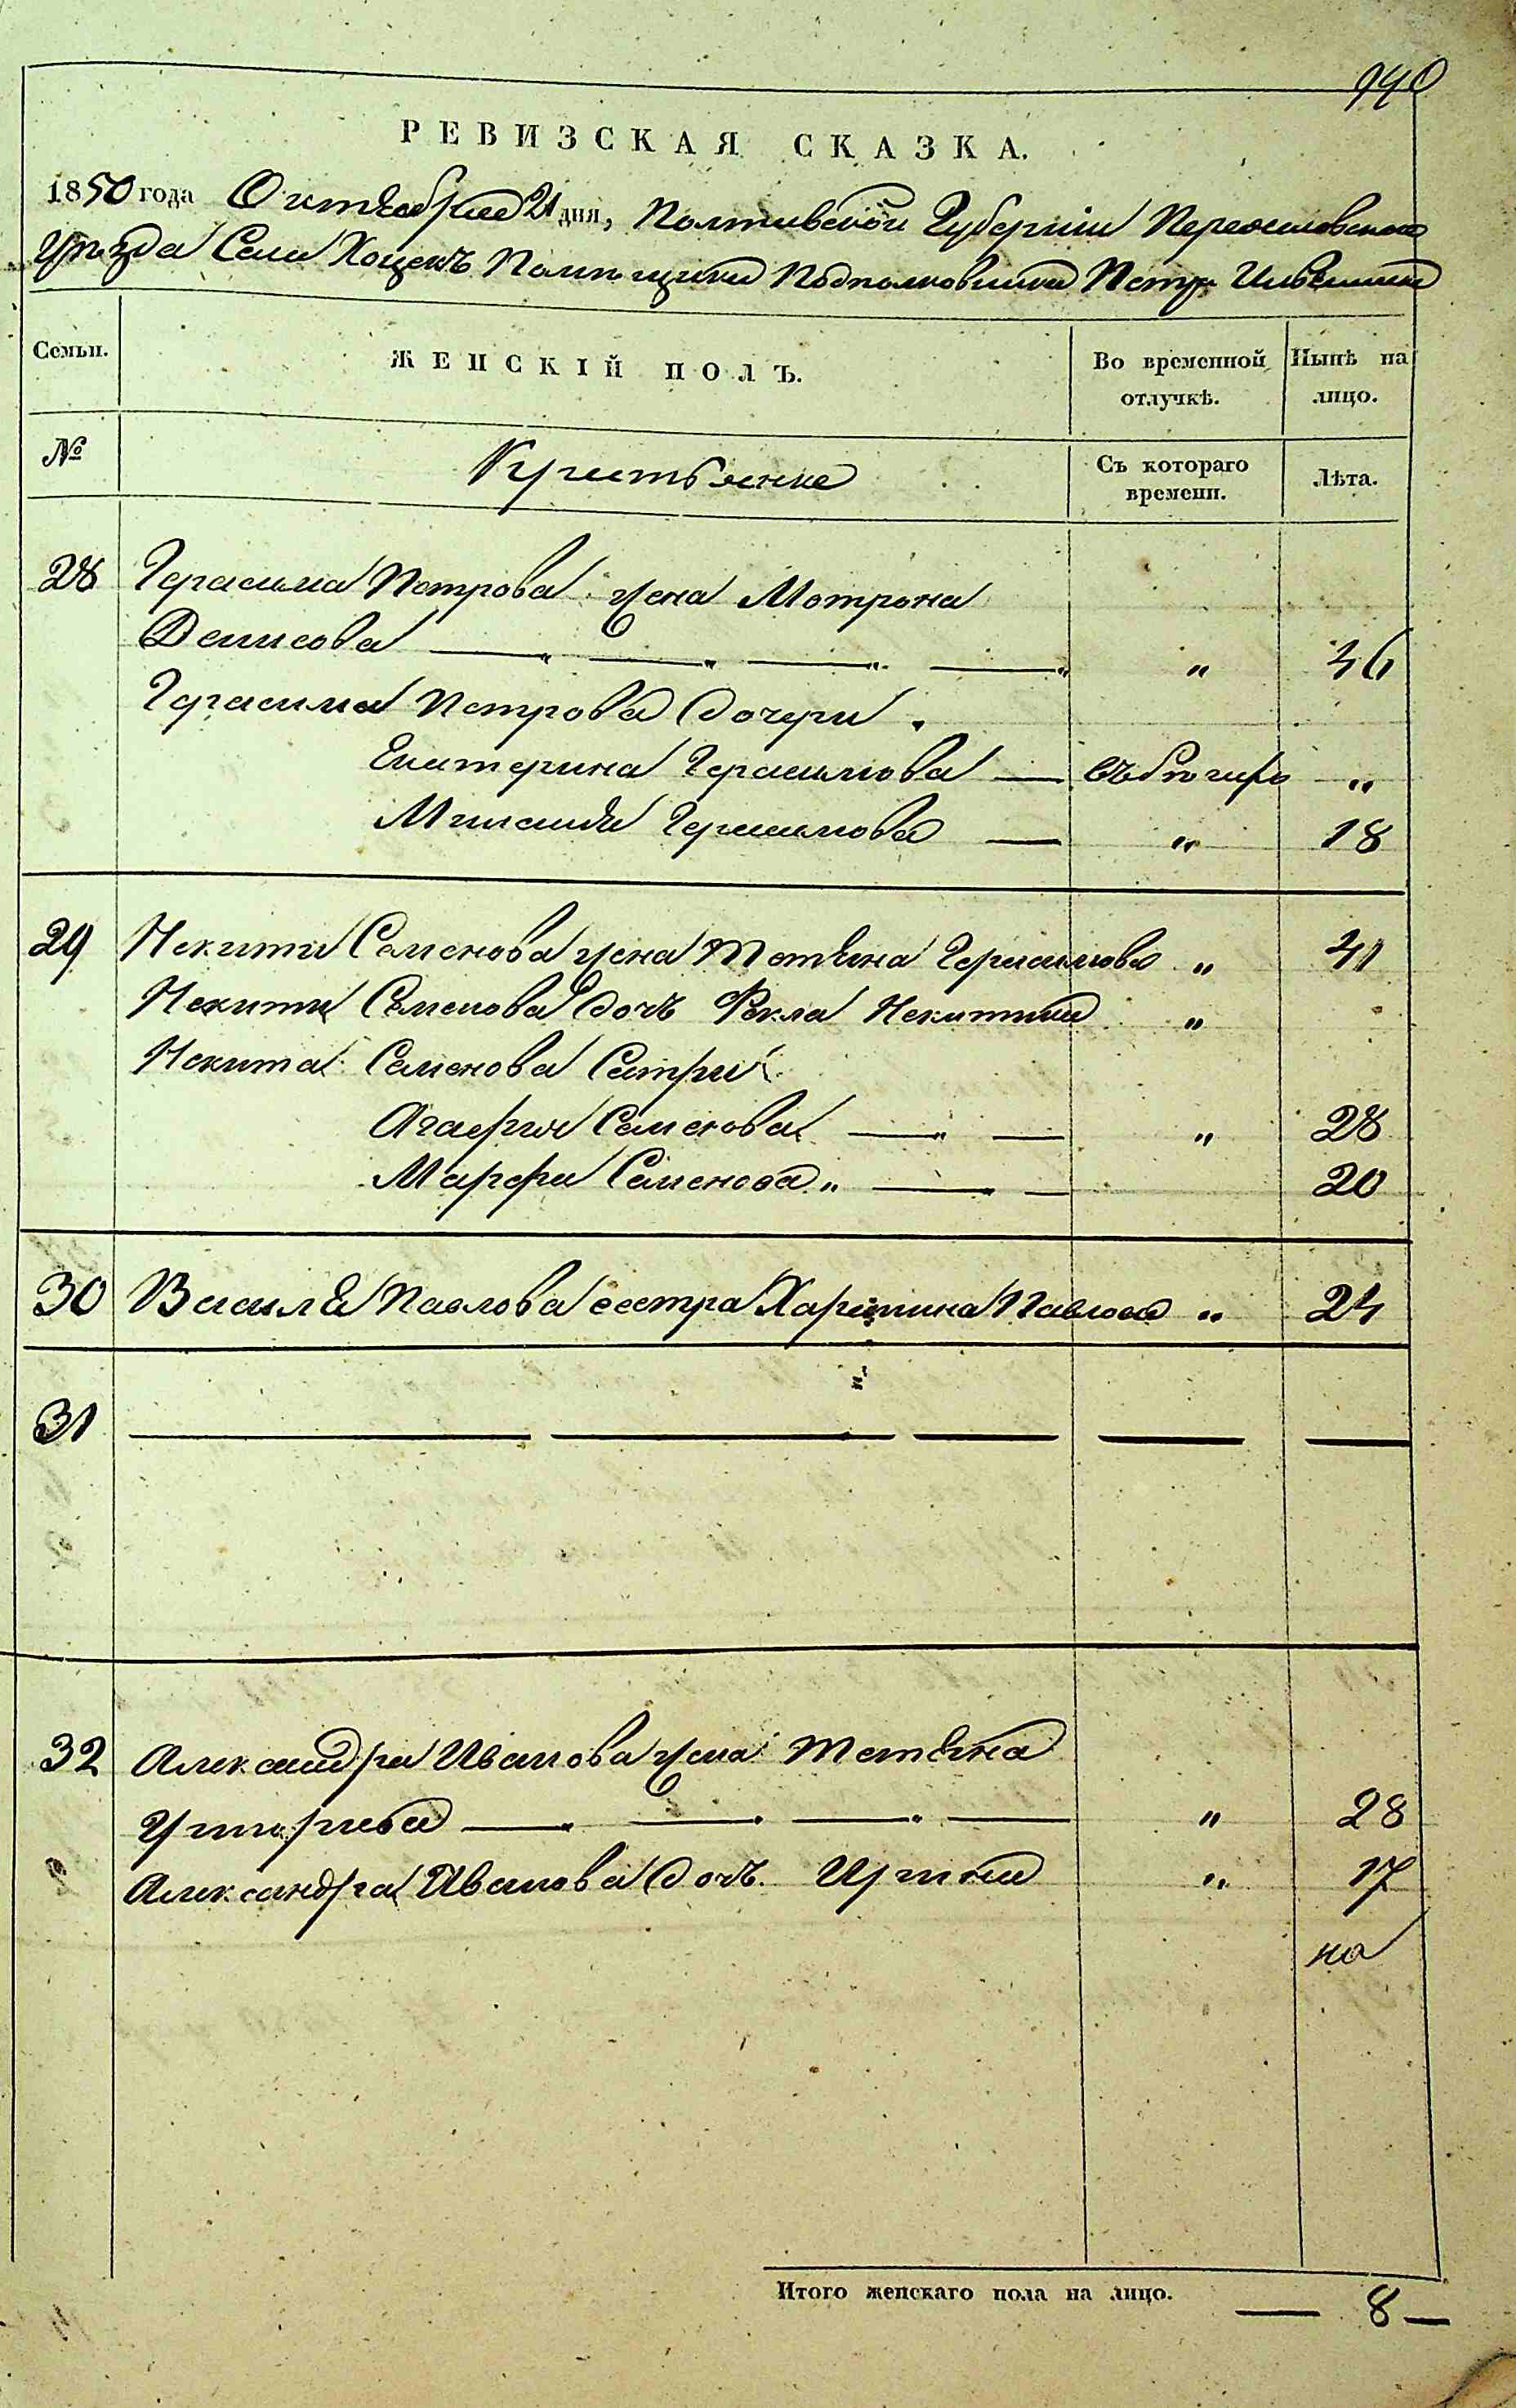 940
РЕВИЗСКАЯ СКАЗКА.
1850 года Октября 21 дня, Полтавской Губернии Переяславского
Уѣзда Села Хоцекъ Помѣщика Подполковника Петра
Семьи. ЖЕНСКІЙ ПОЛЪ. Во временной отлучкѣ. Нынѣ на лицо.
№ Крестьянке Съ котораго времени. Лѣта.
28 Герасима Петрова жена Мотрона
Денисова " 46
Герасима Петрова дочери
Екатерина Герасимова "
Герасимова " 18
29 Некиты Семенова жена Тетяна Герасимова " 41
Некиты Семенова дочъ Фекла Некитина "
Некита Семенова Сестри
Агафия Семенова " 28
Марфа Семенова " 20
30 Василя Павлова сестра Харитина Павлова " 24
31
32 Александра Иванова жена Тетяна
" 28
Александра Иванова дочъ Ирина " 17
на
Итого женскаго пола на лицо. 8